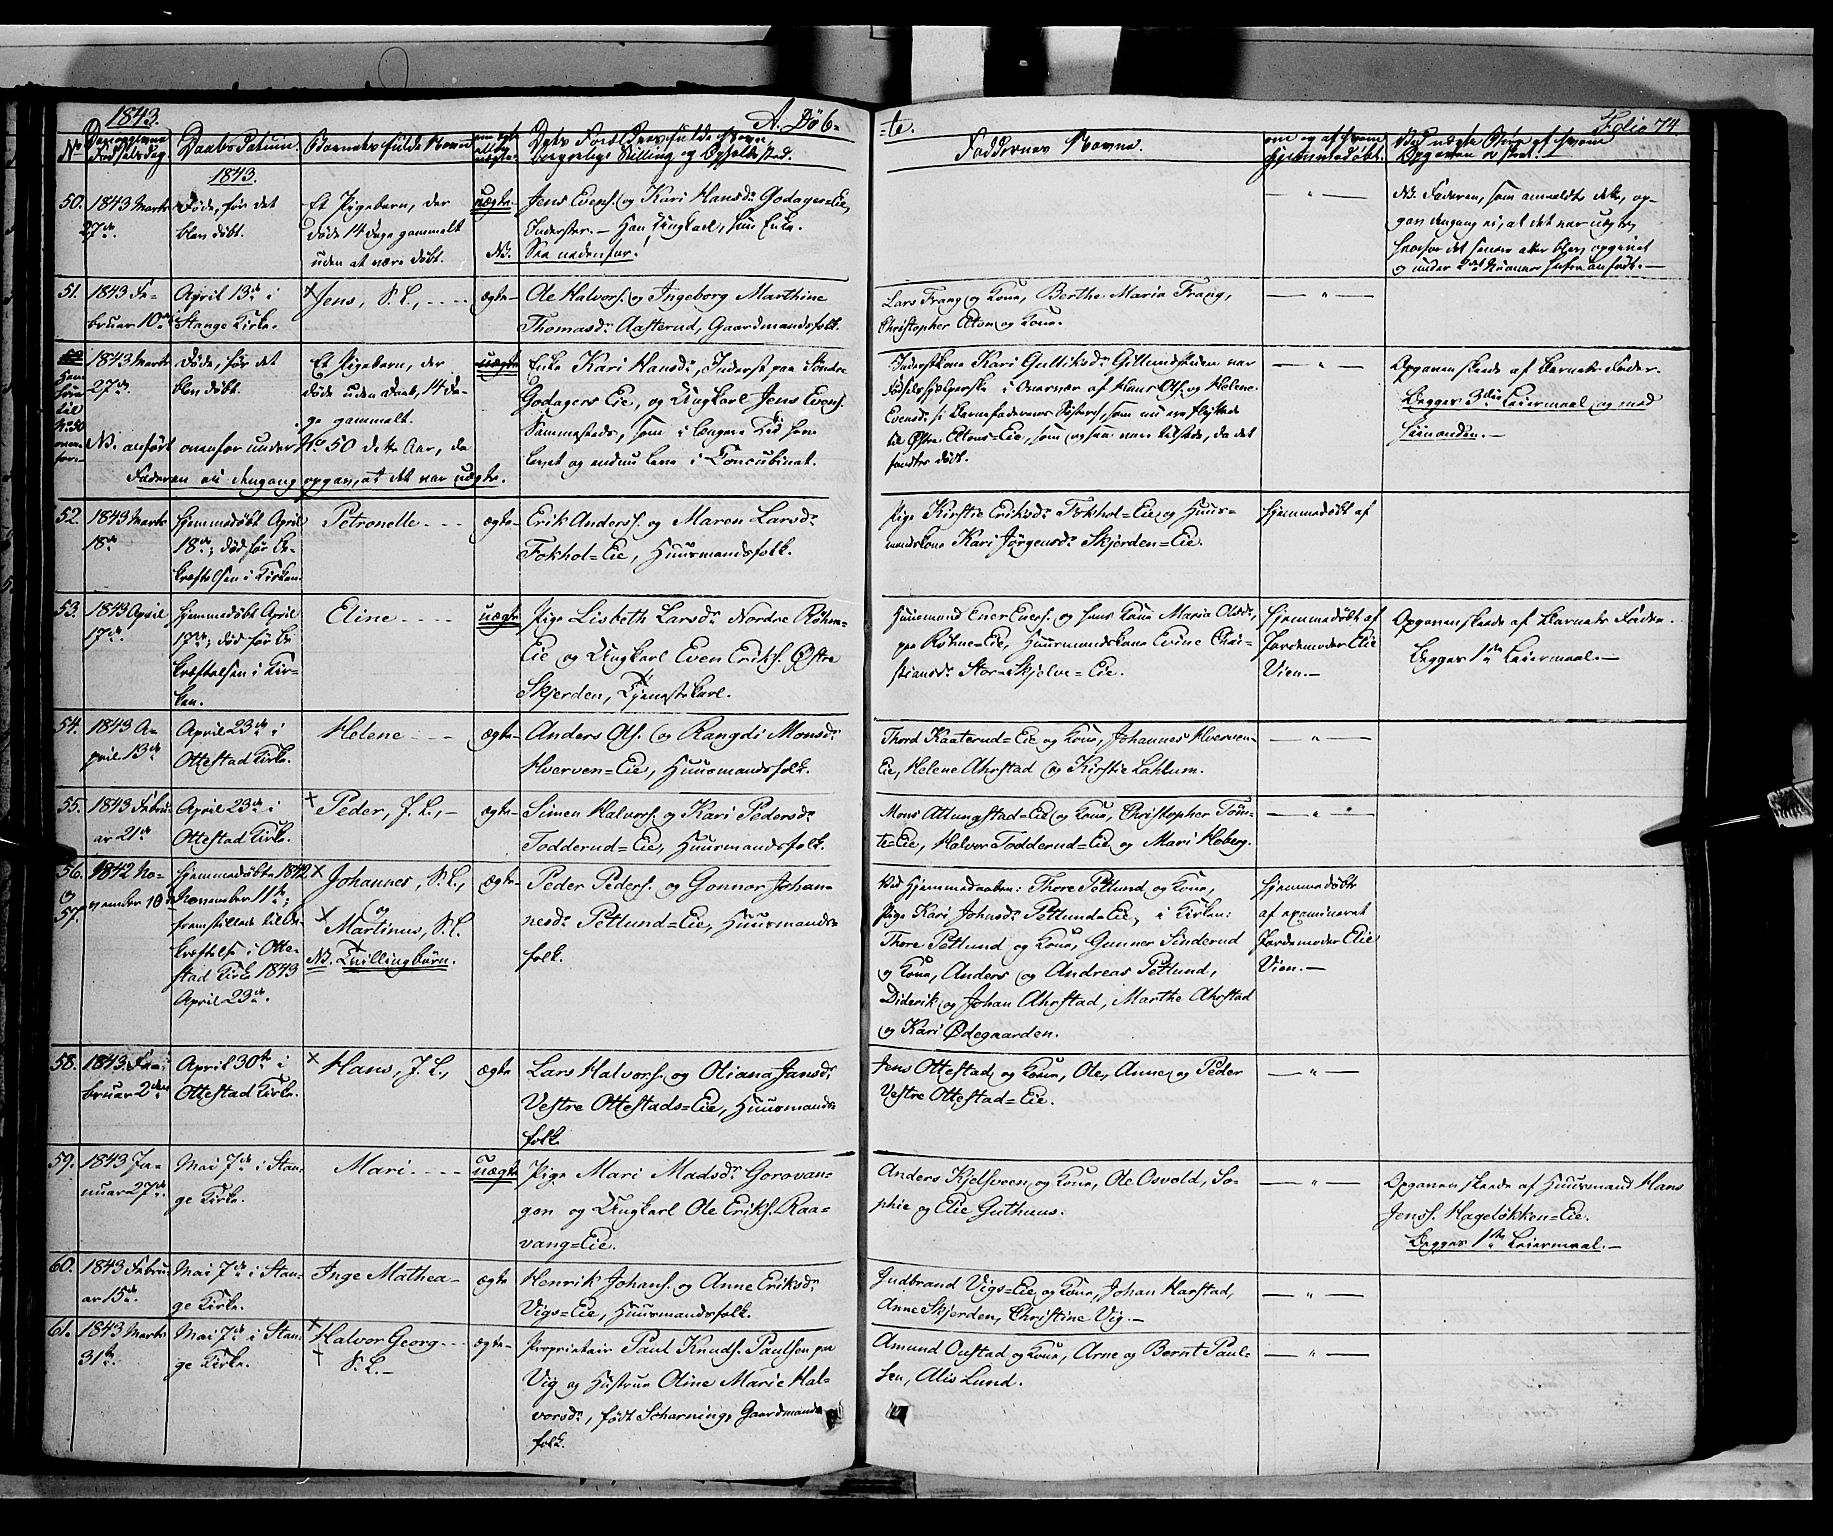 1843.
A. Døb-
te.
Folio 74
No
Dens opgivne Fødselsdag.
Daabs Datum.
Barnets fulde Navn
om ægte eller uægte.
Dets Forældres fulde Navn, borgerlige Stilling og Opholdssted.
Faddernes Navne.
om og af hvem hjemmedøbt.
Ved uægte Børn af hvem Opgaven er skeet.
1843.
50.
1843 Marts
27de.
Døde, før det
blev døbt.
Et Pigebarn, der
døde 14 Dage gammelt
uden at være døbt.
uægte
NB.
Jens Evens. og Kari Hansdr. Godagers=Eie,
Inderster. — Han Ungkarl, hun Enke.
See nedenfor!
— " —
NB. Faderen, som anmeldte dette, op-
gav dengang ei, at det var uægte,
hvorfor det senere atter blev opgivet
51.
1843 Fe-
bruar 10de
April 13de i
Stange Kirke.
× Jens, S. L., ----
ægte
Ole Halvors. og Ingeborg Marthine
Thomasdr. Aasterud, Gaardmandsfolk.
Lars Frang og Kone, Berthe Maria Frang,
Christopher Atom og Kone.
— " —
52
Hen-
høre
til
No 50
oven-
for.
1843 Marts
27de
Døde, før det
blev døbt.
Et Pigebarn, der
døde uden Daab, 14 Da-
ge gammelt.
uægte
Enke Kari Hansdr., Inderst paa Søndre
Godagers Eie, og Ungkarl Jens Evens.
Sammesteds, som i længere Tid have
levet og endnu leve i Concubinat.
NB. anført ovenfor under No. 50 dette Aar, da
Faderen ei dengang opgav, at det var uægte.
Inderstkone Kari Gulliksdr. Gillundstuen var
Evensd. (: Barnefaderens Søster), som nu ere flyttede
til Østre Atoms=Eie, som ogsaa vare tilstede, da det
fandtes dødt.
— " —
Opgaven skeede af Barnets Fader.
Begges 3die Leiermaal og med
hinanden. —
52.
1843 Marts
18de
Hjemmedøbt April
18de; død før Be-
kræftelsen i Kirken.
Petronelle ----
ægte
Erik Anders. og Maren Larsdr.
Fokhol=Eie, Huusmandsfolk.
Pige Kirstie Eriksdr. Fokhol=Eie og Huus-
mandskone Kari Jørgensdr. Skjerden=Eie.
Hjemmedøbt af
53.
1843 April
17de.
Hjemmedøbt April
17de; død før Be-
kræftelsen i Kir-
ken.
Eline ----
uægte
Pige Lisbeth Larsdr. Nordre Røhne-
Eie og Ungkarl Even Eriks. Østre
Skjerden, Tjenestekarl.
Huusmand Ener Evens. og hans Kone Maria Olsdr.
paa Røhne=Eie, Huusmandskone Evine Chri-
stiansdr. Stor=Skjelve=Eie.
Hjemmedøbt af
Jordemoder Elie
Vien. —
Opgaven skeede af Barnets Fader.
Begges 1ste Leiermaal. —
54.
1843 A-
pril 13de
April 23de i
Ottestad Kirke.
Helene ----
ægte
Anders Ols. og Rangdi Monsdr.
Hverven=Eie, Huusmandsfolk.
Thord Kaaterud=Eie og Kone, Johannes Hverven-
Eie, Helene Ahrstad og Kirstie Lahlum.
— " —
55.
1843 Febru-
ar 21de
April 23de i
Ottestad Kirke.
× Peder, J. L., —
ægte
Simen Halvors. og Kari Pedersdr.
Todderud=Eie, Huusmandsfolk.
Mons Attungstad=Eie og Kone, Christopher Tom-
te=Eie, Halvor Todderud=Eie og Mari Hoberg.
— " —
56.
og
57.
1842 No-
vember 10de
Hjemmedøbte 1842
November 11te;
fremstillede til Be-
kræftelse i Otte-
stad Kirke 1843
April 23de.
× Johannes, S. L.,
og
× Martinus, S. L.
NB. Tvillingbørn.
ægte
Peder Peders. og Gonnor Johan-
nesdr. Petlund=Eie, Huusmands-
folk.
Ved Hjemmedaaben: Thore Petlund og Kone,
Pige Kari Johnsdr. Petlund=Eie, i Kirken:
Thore Petlund og Kone, Gunner Sinderud
og Kone, Anders og Andreas Petlund,
Diderik og Johan Ahrstad, Marthe Ahrstad
og Kari Ødegaarden.
Hjemmedøbte
af examineret
Jordemoder Elie
Vien. —
58.
1843 Fe-
bruar 2den
April 30te i
Ottestad Kirke.
× Hans, J. L.,
ægte
Lars Halvors. og Oliana Jansdr.
Vestre Ottestads=Eie, Huusmands-
folk.
Jens Ottestad og Kone, Ole, Anne og Peder
Vestre Ottestad=Eie.
— " —
59.
1843 Ja-
nuar 27de.
Mai 7de i Stan-
ge Kirke.
Mari ----
uægte
Pige Mari Madsdr. Gorovan-
gen og Ungkarl Ole Eriks. Raa-
vang=Eie.
Anders Kjelsveen og Kone, Ole Osvold, So-
phie og Elie Guthuus.
— " —
Opgaven skeede af Huusmand Hans
Jenss. Hageløkken=Eie.
Begges 1ste Leiermaal. —
60.
1843 Febru-
ar 15de.
Mai 7de i Stan-
ge Kirke.
Inge Mathea —
ægte
Henrik Johans. og Anne Eriksdr.
Vigs=Eie, Huusmandsfolk.
Gudbrand Vigs=Eie og Kone, Johan Harstad,
Anne Skjerden, Christine Vig. —
— " —
61.
1843 Marts
31te.
Mai 7de i Stan-
ge Kirke.
× Halvor Georg ---
† S. L. —
ægte
Proprietair Paul Knuds. Paulsen paa
Vig og Hustrue Oline Marie Hal-
vorsdr., født Scharning, Gaardmands-
folk.
Amund Oustad og Kone, Arne og Bernt Paul-
sen, Alis Lund.
— " —